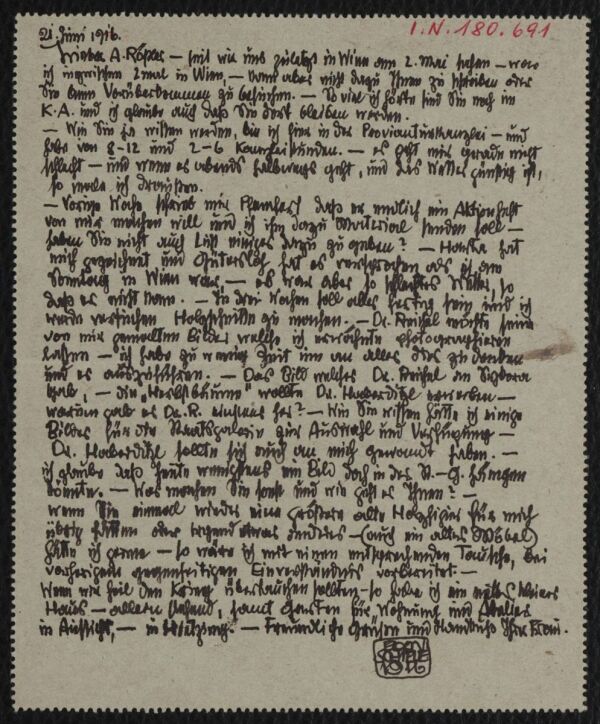 21. Juni 1916. I.N. 180.691
Lieber A. Roessler — seit wir uns zuletzt in Wien am 2. Mai sahen — war
ich inzwischen 2mal in Wien, — kam aber nicht dazu Ihnen zu schreiben oder
Sie beim Vorüberkommen zu besuchen. — So viel ich hörte sind Sie noch im
K.A. und ich glaube auch daß Sie dort bleiben werden.
— Wie Sie ja wissen werden, bin ich hier in der Proviantur kanzlei — und
habe von 8-12 und 2-6 Kanzleistunden. — es geht mir gerade nicht
schlecht — und wenn es abends halbwegs geht, und das Wetter günstig ist,
so male ich draußen.
— Vorige Woche schrieb mir Pfemfert daß er endlich ein Aktionsheft
von mir machen will und ich ihm dazu Material senden soll —
haben Sie nicht auch Lust einiges dazu zu geben? — Harta hat
mich gezeichnet und Gütersloh hat es versprochen als ich am
Sonntag in Wien war, — es war aber so schlechtes Wetter, so
daß er nicht kam. — In drei Wochen soll alles fertig sein und ich
werde versuchen Holzschnitte zu machen. — Dr. Reichel möchte seine
von mir gemalten Bilder welche ich erwähnte photographieren
lassen — ich habe zu wenig Zeit um an alles das zu denken
und es auszuführen. — Das Bild welches Dr. Reichel an
gab, — die „Herbstbäume" wollte Dr. Haberditzl erwerben —
warum gab es Dr. R. her? — Wie Sie wissen hätte ich einige
Bilder für die Staatsgalerie zur Auswahl und Verfügung —
Dr. Haberditzl sollte sich auch an mich gewandt haben. —
ich glaube daß heute wenigstens ein Bild doch in der St.-G. hängen
könnte. — Was machen Sie sonst und wie geht es Ihnen? —
wenn Sie einmal wieder eine größere alte Holzfigur für mich
übrig hätten oder irgend etwas anderes — (auch ein altes Möbel)
hätte ich gerne — so wäre ich mit einem entsprechenden Tausche, bei
vorherigem gegenseitigen Einverständnis vorbereitet —
Wenn wir heil den Krieg überdauern sollten — so habe ich ein altes kleines
Haus — allein stehend, samt Garten für Wohnung und Atelier
in Aussicht, — in Hietzing. — Freundliche Grüße und Handkuß Ihrer Frau.
EGON
SCHIELE
1916